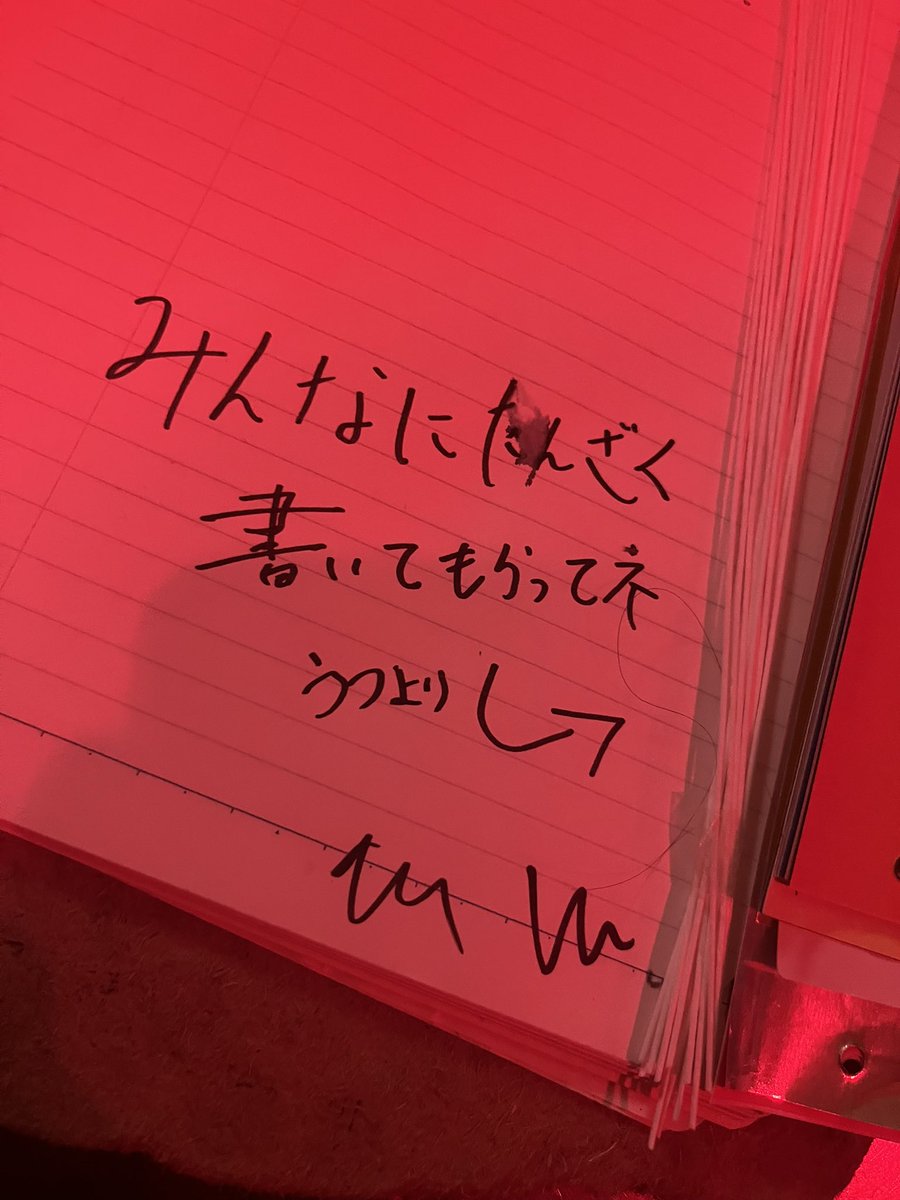 みんなにたんざく
書いてもらってネ
うつより